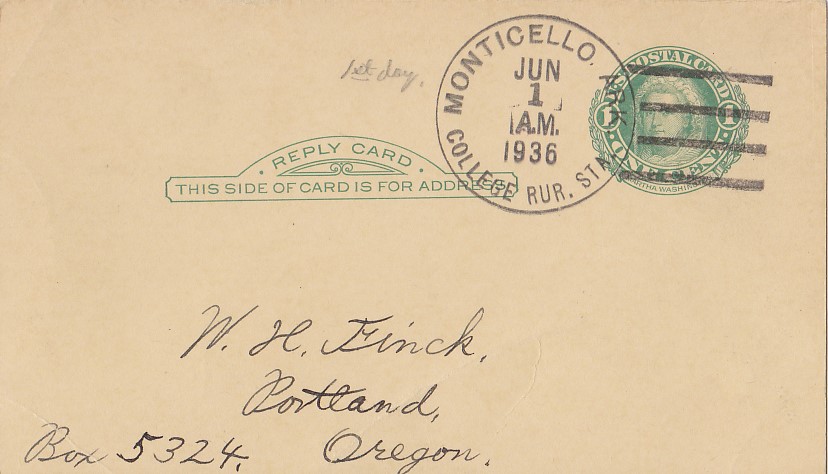 1st day.
MONTICELLO, ARK.
JUN
1
A.M.
1936
COLLEGE RUR. STA.
U.S. POSTAL CARD
1 1
ONE CENT
MARTHA WASHINGTON
REPLY CARD
THIS SIDE OF CARD IS FOR ADDRESS
W. H. Finck.
Portland,
Box 5324. Oregon.